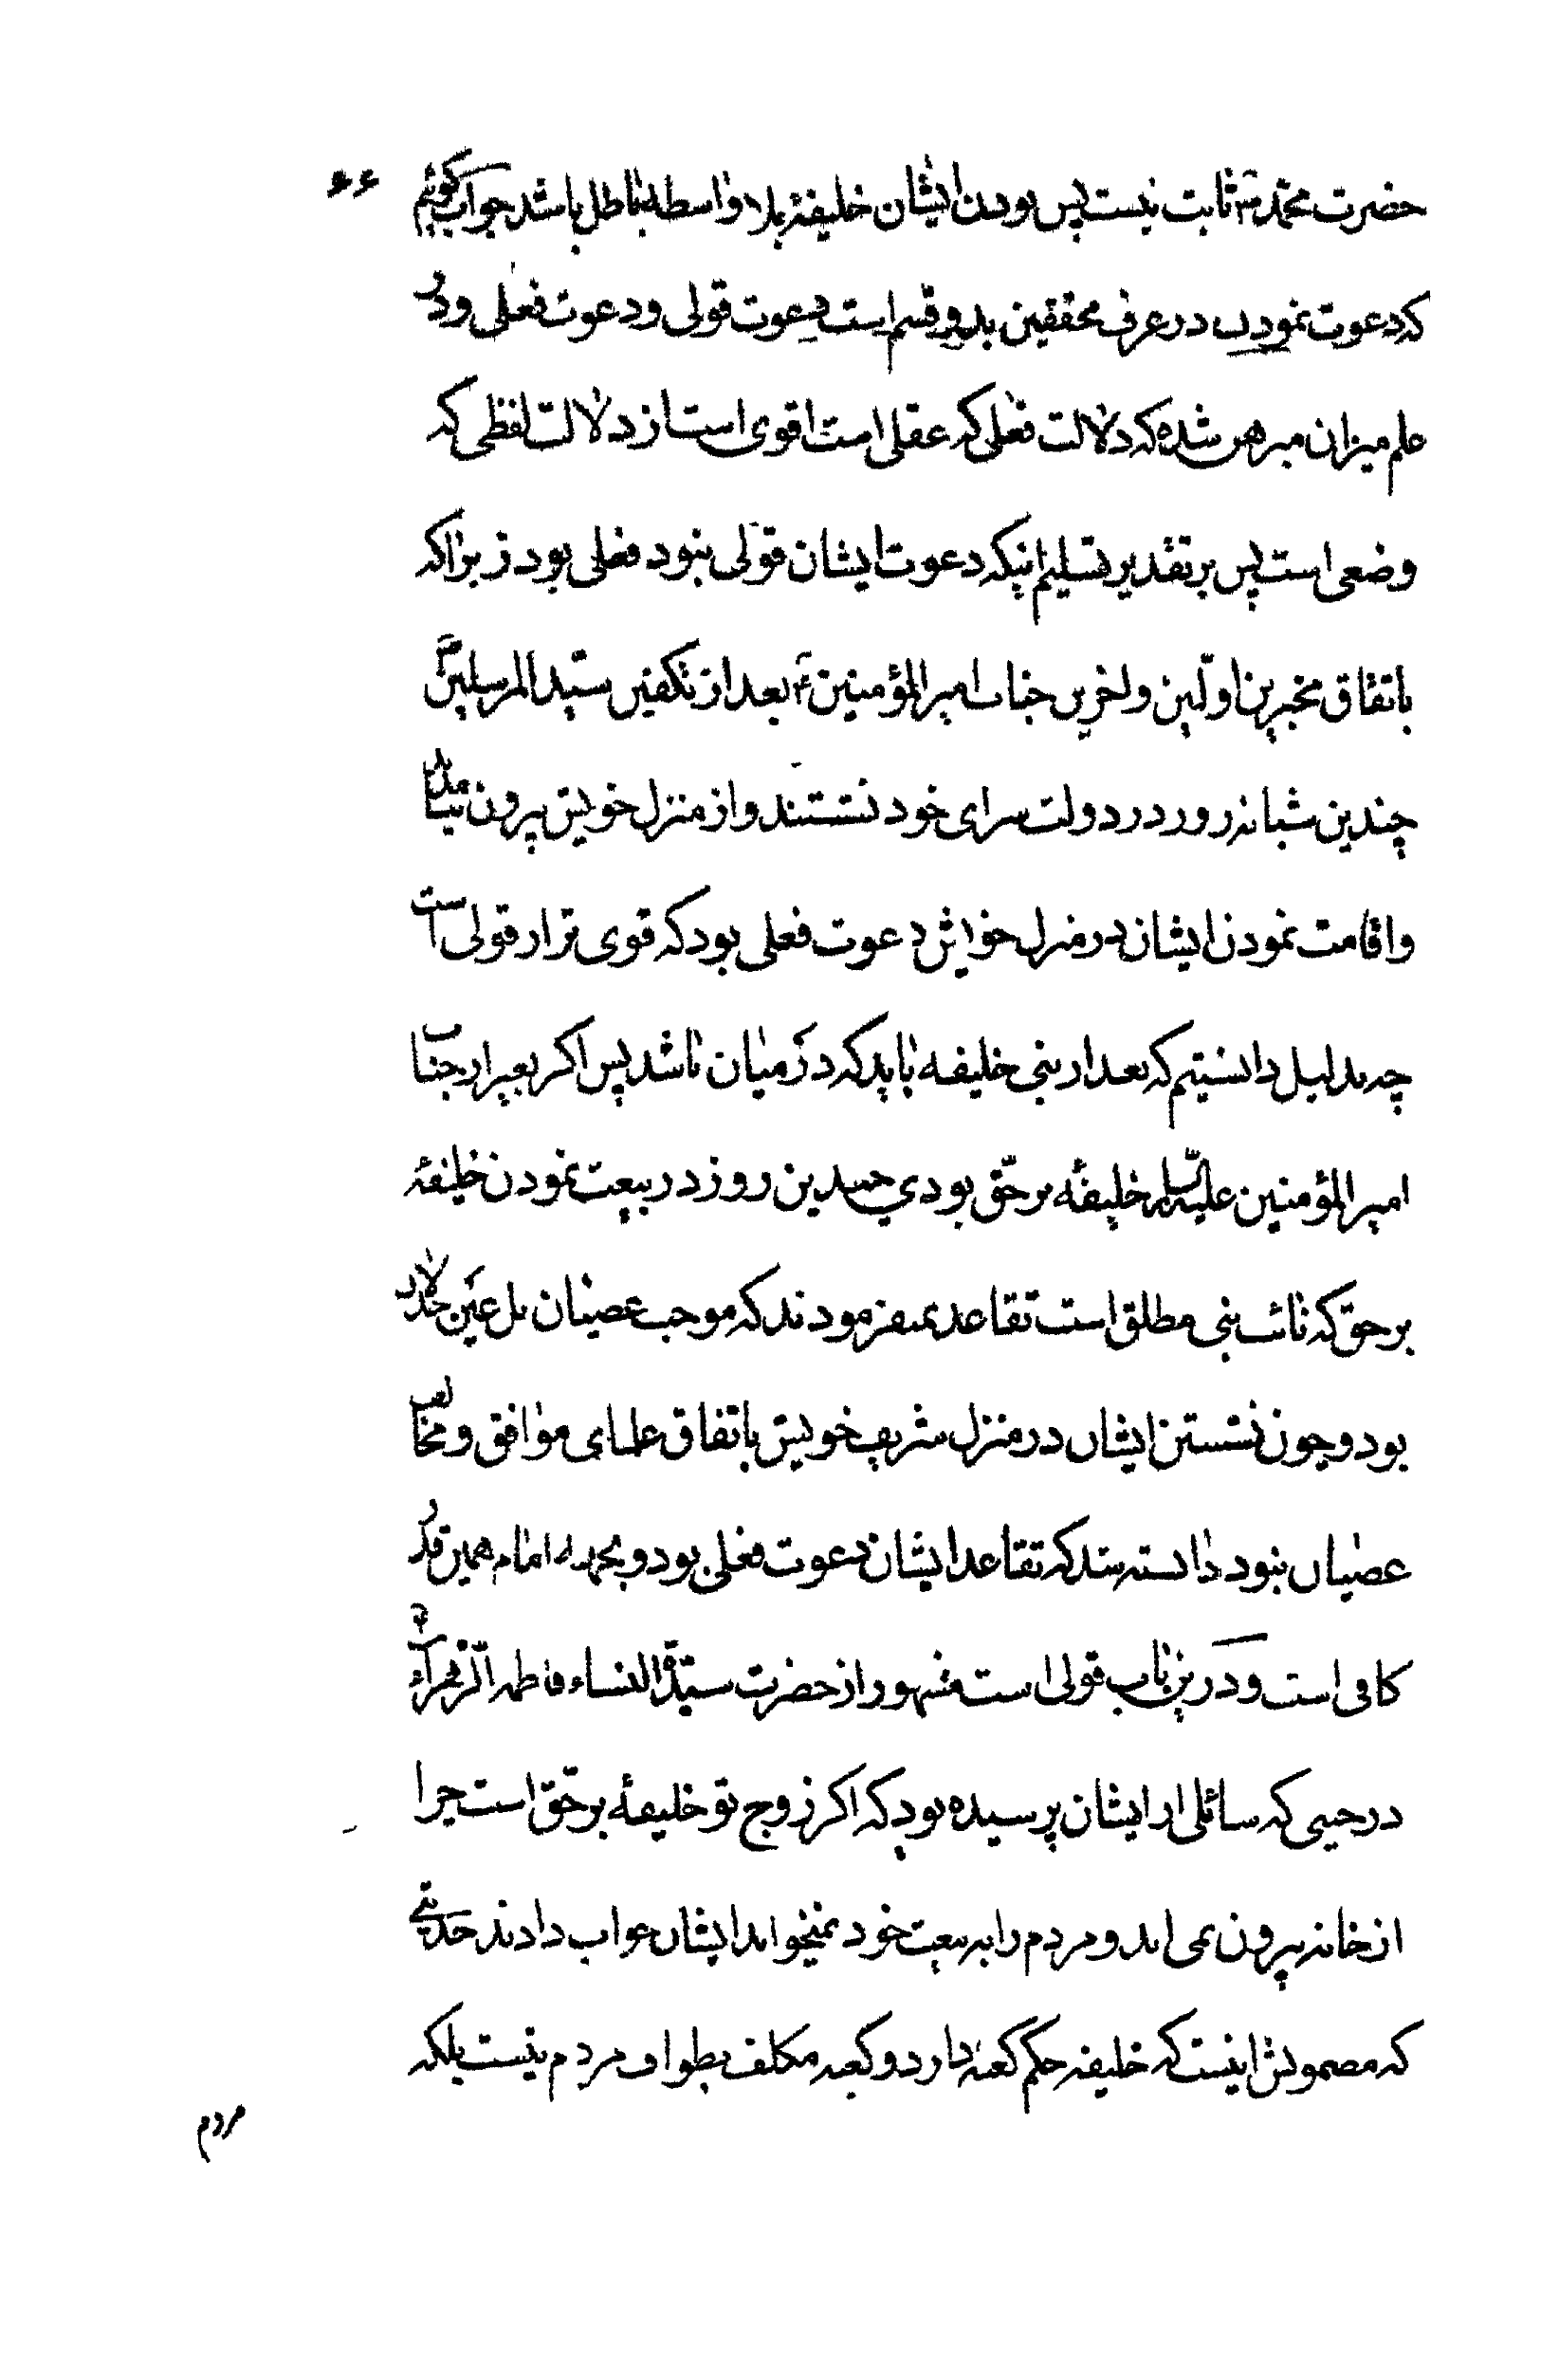 ۶۶
حضرت محمد ثابت نیست پس بودن ایشان خلیفهٔ بلا واسطه باطل باشد جواب کوئیم
که دعوت نمودن در عرف محققین بدو قسم است دعوت قولی و دعوت فعلی و در
علم میزان مبرهن شده که دلالت فعلی که عقلی است اقوی است از دلالت لفظی که
وضعی است پس بر تقدیر تسلیم اینکه دعوت ایشان قولی نبود فعلی بود زیراکه
باتفاق مخبرین اوّلین و اخرین جناب امیرالمؤمنین بعد از تکفین سیّد المرسلین
چندین شبانه روز در دولت سرای خود نشستند و از منزل خویش بیرون نیامدند
و اقامت نمودن ایشان در منزل خوایش دعوت فعلی بود که قوی تر از قولی است
چه بدلیل دانستیم که بعد از نبی خلیفه باید که در میان باشد پس اکر بغیر از جناب
امیر المؤمنین علیه السلام خلیفهٔ بر حقّ بودی چندین روز در بیعت نمودن خلیفهٔ
بر حق که نائب نبی مطلق است تقاعد نمیفرمودند که موجب عصیان بل عین
بود و چون نشستن ایشان در منزل شریف خویش باتفاق علمای موافق و مخالف
عصیان نبود دانسته شد که تقاعد ایشان دعوت فعلی بود و بجهة امام همین قدر
کافی است و در این باب قولی است مشهور از حضرت سیّدة النساء فاطمه الزّهراء
در حینی که سائلی از ایشان پرسیده بود که اکر زوج تو خلیفهٔ بر حقّ است چرا
از خانه بیرون نمی اید و مردم را به بیعت خود نمیخواند ایشان جواب دادند حدیثی
که مضمونش اینست که خلیفه حکم کعبه دارد و کعبه مکلف بطواف مردم نیست بلکه
مردم